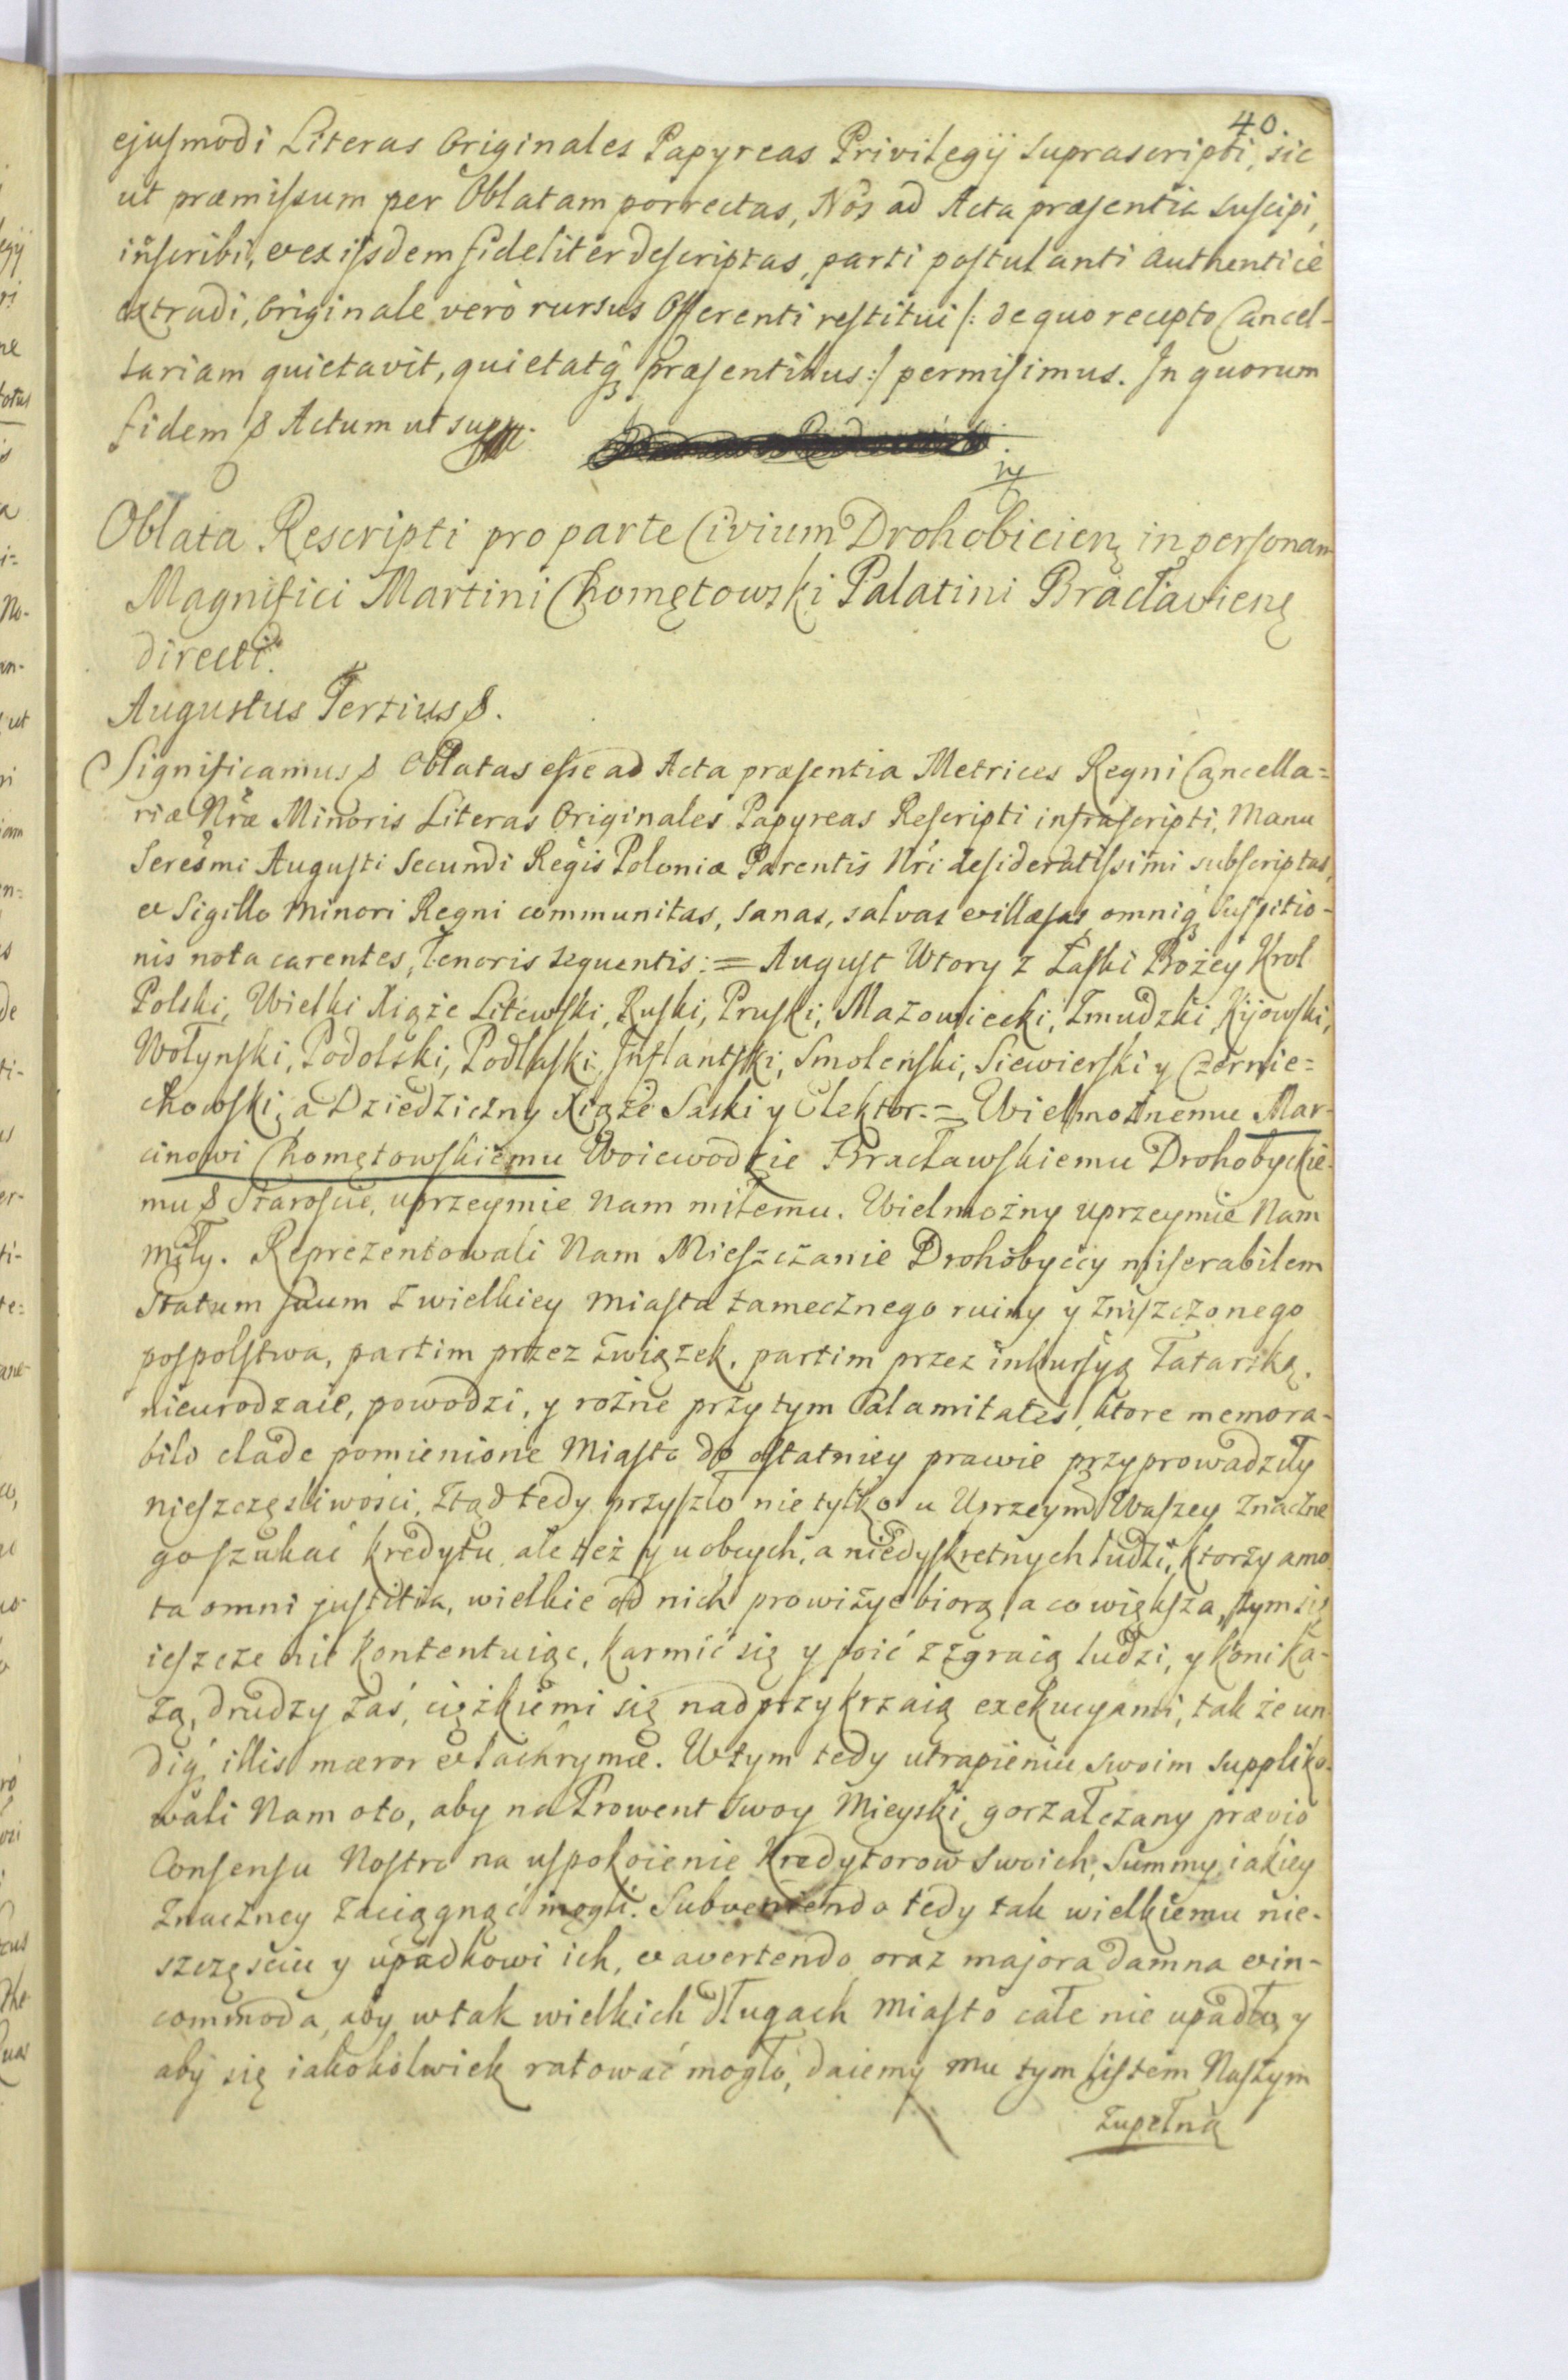 40.
ejusmodi Literas Originales Papyreas Privilegij suprascripti, sic
ut præmissum per Oblatam porrectas, Nos ad Acta præsentia suscipi,
inscribi, et ex iisdem fideliter descriptas, parti postulanti authentice
extradi, originale verò rursus Offerenti restitui /: de quo recepto Cancel-
lariam quietavit, quietatq̃ præsentibus :/ permisimus. In quorum
fidem & Actum ut supra.
Oblata Rescripti pro parte Civium Drohobicien̨ in personam
Magnifici Martini Chomętowski Palatini Bracłavien̨
directi.
Augustus Tertius &.
Significamus & Oblatas esse ad Acta præsentia Metrices Regni Cancella=
riæ Nræ Minoris Literas Originales Papyreas Rescripti infrascripti, Manu
Sereñmi Augusti Secundi Regis Poloniæ Parentis Nri desideratissimi subscriptas,
et Sigillo minori Regni communitas, sanas, salvas et illæsas, omniq̃ suspitio-
nis nota carentes, Tenoris sequentis: = August Wtory z Łaski Bożey Krol
Polski, Wielki Xiąże Litewski, Ruski, Pruski, Mazowiecki, Zmudzki, Kijowski,
Wołynski, Podolski, Podlaski, Inflantski, Smolenski, Siewierski y Czernie=
chowski, a Dziedziczny Xiąże Saski y Elektor. = Wielmożnemu Mar-
cinowi Chomętowskiemu Woiewodzie Bracławskiemu Drohobyckie-
mu & Staroscie, uprzeymie nam miłemu. Wielmożny uprzeymie Nam
miły. Reprezentowali Nam Mieszczanie Drohobyccy miserabilem
Statum suum z wielkiey miasta tamecznego ruiny y zniszczonego
pospolstwa, partim przez związek, partim przez inkursyą Tatarską,
nieurodzaie, powodzi, y rożne przy tym Calamitates, ktore memora-
bilo clade pomienione Miasto do ostatniey prawie przyprowadziły
nieszczęsliwości, ztąd tedy przyszło nie tylko u Uprzeym Waszey znaczne
go szukać kredytu, ale też y u obcych, a niedyskretnych ludzi, ktorzy amo
ta omni justitia, wielkie od nich prowizye biorą, a co większa, tym się
ieszcze nie kontentuiąc, karmić się y poić z zgraią ludzi, y koni ka-
żą, drudzy zaś, ciężkiemi się nadprzykrzaią exekucyami, tak że un
diq̃ illis mæror et lachrymæ. W tym tedy utrapieniu swoim suppliko-
wali Nam oto, aby na Prowent swoy Mieyski, gorzałczany prævio
Consensu Nostro na uspokoienie Kredytorow swoich, Summy iakiey
znaczney zaciągnąć mogli. Subveniendo tedy tak wielkiemu nie-
szczęściu y upadkowi ich, et avertendo oraz majora damna et in-
commoda, aby w tak wielkich długach miasto całe nie upadło, y
aby się iakokolwiek ratować mogło, daiemy mu tym listem Naszym
zupełną